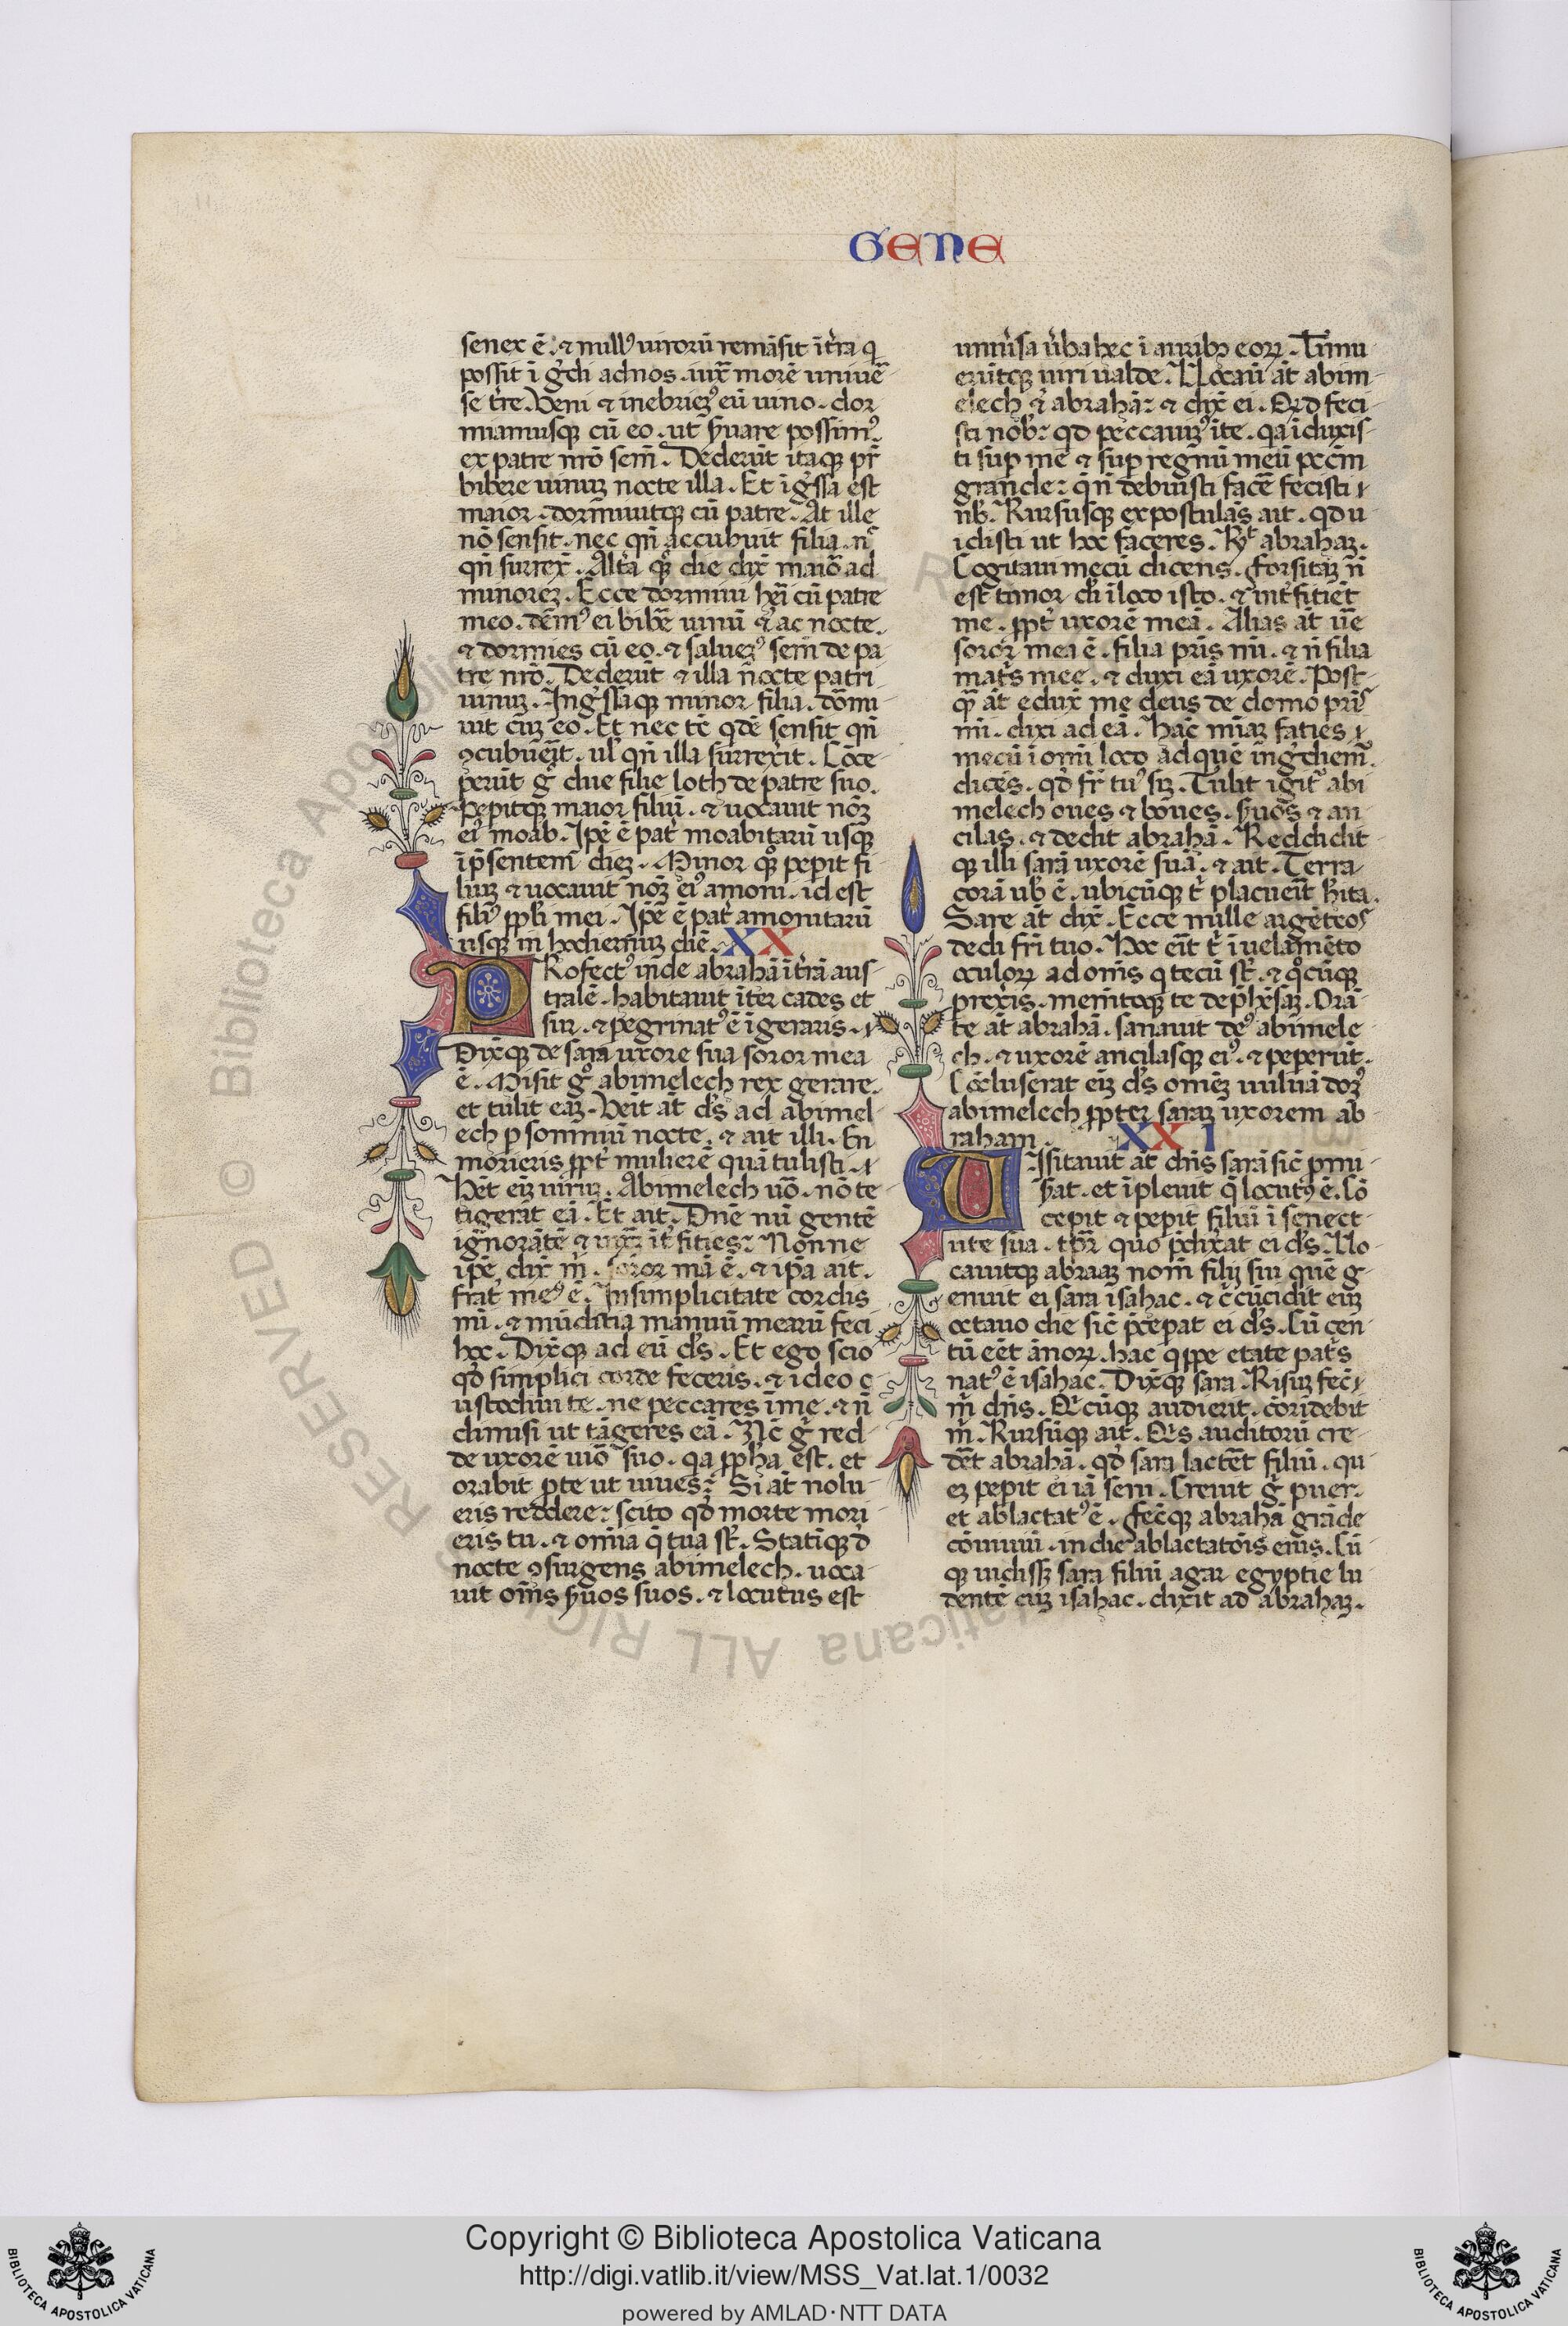 GENE
senex ē. ⁊ null᷒ uiroꝝ remāsit ītr̄a q
possit ī g̃di ad nos. iux̄ morē uniuē-
se tr̄e. Veni ⁊ inebriem᷒ eū uino. dor
miamusqꝫ cū eo. ut s̄uare possim᷒
ex patre nr̄o sem̄. Dederūt itaqꝫ pr̄i
bibere uinuꝫ nocte illa. Et īg̃ssa est
maior. dormiuitqꝫ cū patre. At ille
nō sensit. nec qn̄ accubuit filia. n̄c
qn̄ surrex̄. Altr̄a qꝫ die dix̄ maior̄ ad
minoreꝫ. Ecce dormiui her̄i cū patre
meo. dem᷒ ei bibē uinū ⁊ ac nocte.
⁊ dormies cū eo. ⁊ saluem᷒ sem̄ de pa
tre nr̄o. Dederūt ⁊ illa nocte patri
uinuꝫ. Ing̃ssaqꝫ minor filia. dor̄mi
uit cuꝫ eo. Et nec tc̄ qdē sensit qn̄
ꝯcubuerit. ul̄ qn̄ illa surrexit. Cōce-
perūt g̊ due filie loth de patre suo.
Pepitqꝫ maior filiū. ⁊ uocauit nom̄
ei᷒ moab. Ip̄e ē pat̄ moabitarū usqꝫ
īp̄sentem dieꝫ. Minor qꝫ pepit fi
liuꝫ ⁊ uocauit nom̄ ei᷒ amoni. id est
fili᷒ pp̄li mei. Ip̄e ē pat̄ amonitarū
usqꝫ in hodiernuꝫ diē. XX
PRofect᷒ īn̄de abrahā ītr̄ā aus-
tralē. habitauit īter cades et
sur. ⁊ pegrinat᷒ ē ī geraris.
Dix̄qꝫ de sara uxore sua soror mea
ē. Misit g̊ abimelech rex gerare.
et tulit eaꝫ. Ven̄it at̄ ds̄ ad abimel-
ech p somniū nocte. ⁊ ait illi. En
morieris ppt̄ mulierē quā tulisti.
hēt eīꝫ uiruꝫ. Abimelech uō. nō te
tigerat eā. Et ait. Dn̄e nū gentē
ignorātē ⁊ iux̄ꝫ īt̄ficies: Nonne
ip̄e dix̄ m̄. soror mā ē. ⁊ ip̄a ait.
frat̄ me᷒ ē. In simplicitate cordis
mī. ⁊ mūditia manuū mearū feci
hoc. Dix̄qꝫ ad eū ds̄. Et ego scio
qd̄ simplici corde feceris. ⁊ ideo c
ustodiui te. ne peccares ī me. ⁊ n̄
dimisi ut tāgeres eā. Nc̄ g̊ red-
de uxorē uir̄o suo. qa pp̄ha est. et
orabit p te ut uiues: Si at̄ nolu-
eris reddere: scito qd̄ morte mori
eris tu. ⁊ omīa q̄ tua st̄. Statīqꝫ d̄
nocte ꝯsurgens abimelech. uoca-
uit om̄s s̄uos suos. ⁊ locutus est
uniū̄sa ūba hec ī aurib᷒ eoꝝ. Timu-
erūtqꝫ uiri ualde. Uocau̅ at̄ abim-
elech ⁊ abrahā: ⁊ dix̄ ei. Qd̄ feci-
sti nob̄: qd̄ peccauim᷒ ī te. qa īduxis-
ti sup me ⁊ sup regnū meū pccm̄
grande: q̄ n̄ debuisti facē fecisti
nb̄. Rursusqꝫ expostulās ait. qd̄ u-
idisti ut hoc faceres. Rn̄t abrahaꝫ.
Cogitaui mecū dicens. forsitaꝫ n̄
est timor d̄i ī loco isto. ⁊ int̄ficiet
me. ppt̄ uxorē meā. Alias at̄ uē
soror mea ē. filia pr̄is mī. ⁊ n̄ filia
matr̄s mee. ⁊ duxi eā uxorē. Post-
qꝫ at̄ edux̄ me deus de domo pr̄is
mī. dixi ad eā. Hāc mīaꝫ faties
mecū ī om̄i loco ad quē ing̃diem᷒.
dices. qd̄ fr̄ tu᷒ siꝫ. Tulit igit̄ abi
melech oues ⁊ boues. s̄uos ⁊ an-
cilas. ⁊ dedit abrahā. Reddidit-
qꝫ illi sarā uxorē suā. ⁊ ait. Terra
corā ub̄ ē. ubicūqꝫ t̄ placueit hita.
Sare at̄ dix̄. Ecce mille argēteos
dedi fr̄i tuo. Hoc erīt t̄ ī uelamēto
oculoꝝ ad om̄s q tecū st̄. ⁊ q̊cūqꝫ
prexis. mem̄toqꝫ te dep̄hēsaꝫ. Orā-
te at̄ abrahā. sanauit de᷒ abimele-
ch. ⁊ uxorē ancilasqꝫ ei᷒. ⁊ peperūt.
Cōcluserat eīꝫ ds̄ omēꝫ uuluā dom᷒
abimelech ppter saraꝫ uxorem ab-
raham. XXI
UIsitauit at̄ dn̄s sarā sic̄ pmi-
s̄at. et īpleuit q̄ locut᷒ ē. Cō
cepit ⁊ pepit filiū ī senect-
ute sua. tp̄r quo p̄dix̄at ei ds̄. Uo-
cauitqꝫ abraaꝫ nom̄ filij sui que g-
enuit ei sara isahac. ⁊ cc̄ūcidit eīꝫ
octauo die sic̄ p̄cepat ei ds̄. Cū cen-
tū eēt ānoꝝ. hac qppe etate patr̄s
nat᷒ ē isahac. Dix̄qꝫ sara. Risuꝫ fec̄
m̄ dn̄s. Qicūqꝫ audierit. corridebit
m̄. Rursūqꝫ ait. Qis auditorū cre-
det abrahā. qd̄ sara lactēt filiū. qu
eꝫ pepit ei iā seni. Creuit g̊ puer.
et ablactat᷒ ē. fec̄qꝫ abrahā grāde
cōuiuiū. in die ablactatōis eius. Cū
qꝫ uidissꝫ sara filiū agar egyptie lu
dentē cuꝫ isahac. dixit ad abrahaꝫ.
Copyright © Biblioteca Apostolica Vaticana
http://digi.vatlib.it/view/MSS_Vat.lat.1/0032
powered by AMLAD·NTT DATA
BIBLIOTECA APOSTOLICA VATICANA
BIBLIOTECA APOSTOLICA VATICANA